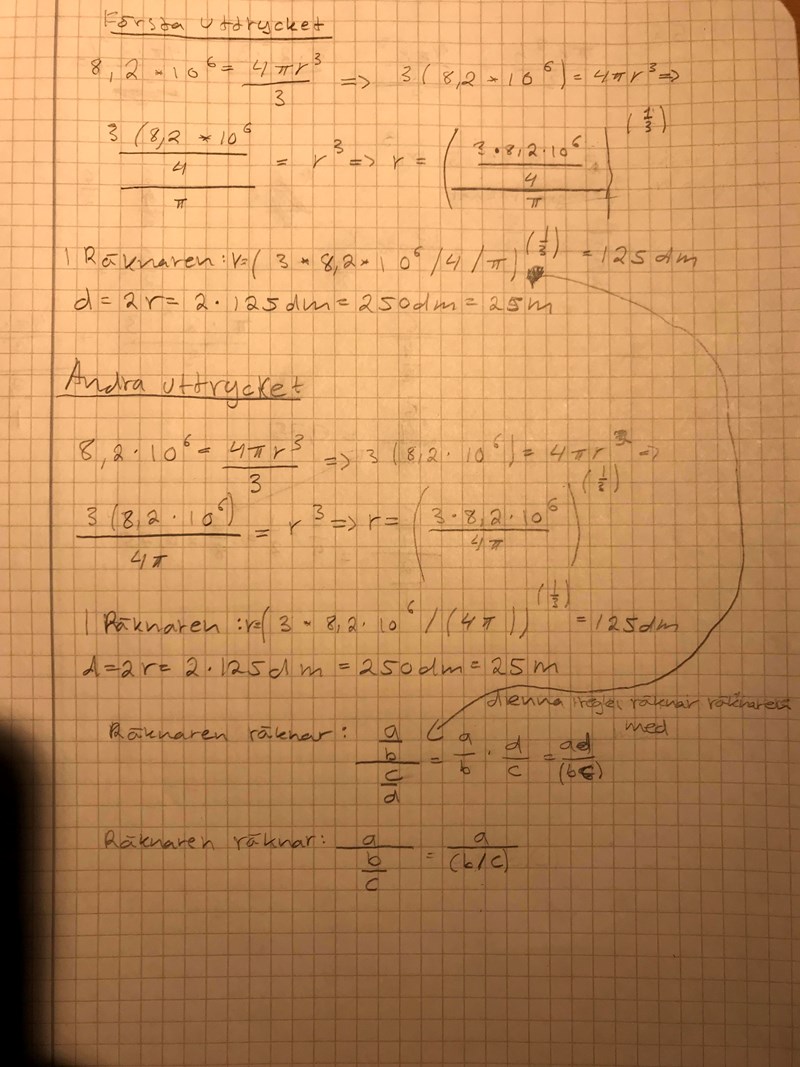 Första uttrycket
8,2 * 10^6 = 4πr^3 / 3 => 3(8,2 * 10^6) = 4πr^3 =>
((3(8,2 * 10^6 / 4) / π) = r^3 => r = (((3 • 8,2 • 10^6) / 4) / π)^(1/3)
I Räknaren: r=(3 * 8,2 * 10^6 /4/π)^(1/3) = 125 dm
d = 2r = 2 • 125 dm = 250 dm = 25 m
Andra uttrycket
8,2 • 10^6 = 4πr^3 / 3 => 3(8,2 • 10^6) = 4πr^3 =>
3(8,2 • 10^6) / 4π = r^3 => r = (3 • 8,2 • 10^6 / 4π)^(1/3)
I Räknaren: r=(3 * 8,2 • 10^6 /(4π))^(1/3) = 125 dm
d = 2r = 2 • 125 dm = 250 dm = 25 m
denna regel räknar räknaren
med
Räknaren räknar: (a/b) / (c/d) = a/b • d/c = ad/(bc)
Räknaren räknar: a / (b/c) = a/(b/c)